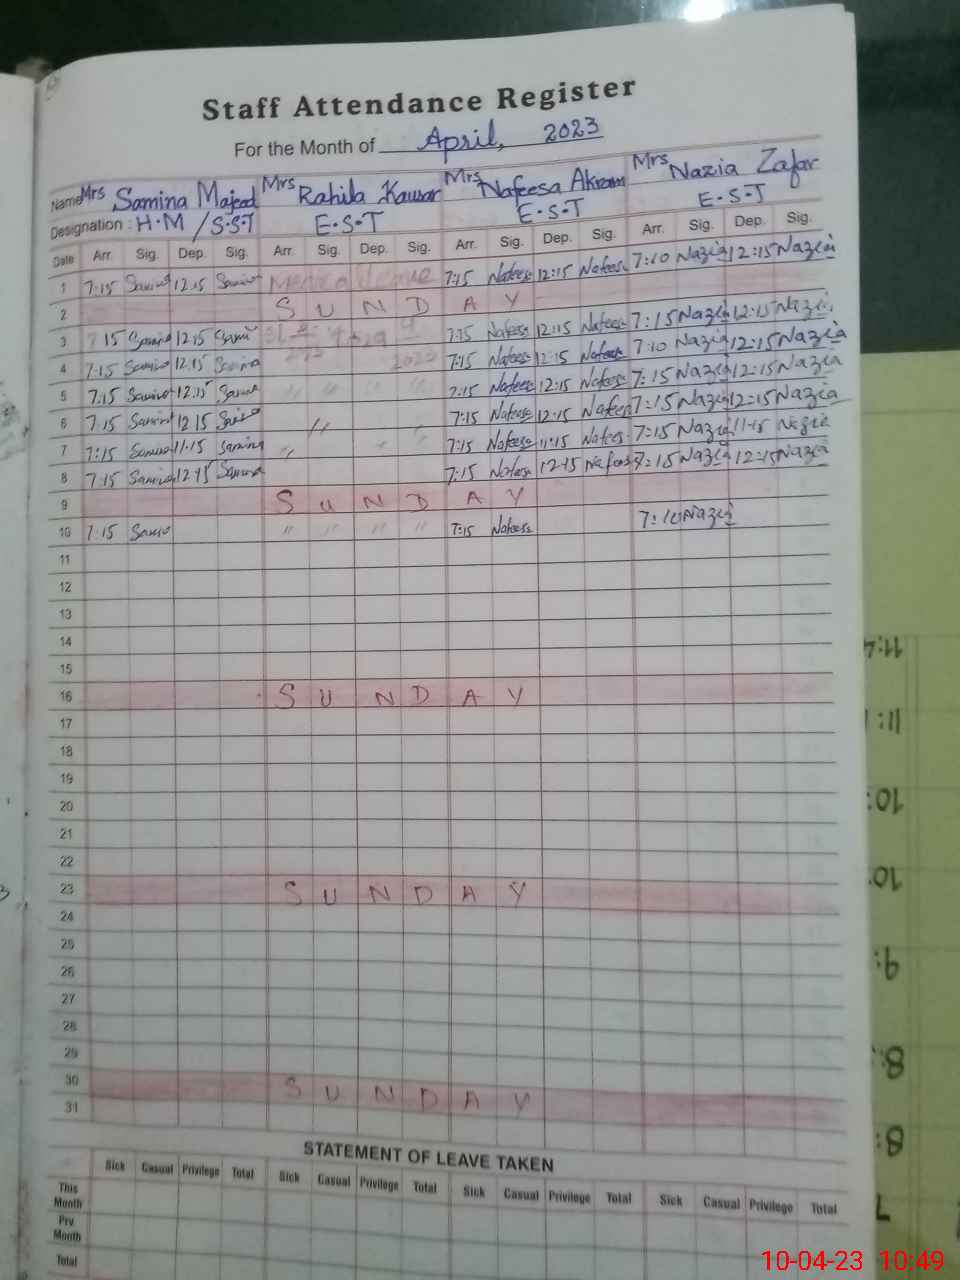 Staff Attendance Register
For the Month of April, 2023
Name Mrs Samina Majeed Mrs Rahila Kausar Mrs Nafeesa Akram Mrs Nazia Zafar
Designation : H.M / S.S.T E.S.T E.S.T E.S.T
Date Arr. Sig. Dep. Sig. Arr. Sig. Dep. Sig. Arr. Sig. Dep. Sig. Arr. Sig. Dep. Sig.
1 7:15 Samina 12:15 Samina Medical Leave 7:15 Nafeesa 12:15 Nafeesa 7:10 Nazia 12:15 Nazia
2 S U N D A Y
3 7 15 Samina 12:15 Samina 7:15 Nafeesa 12:15 Nafeesa 7:15 Nazia 12:15 Nazia
4 7:15 Samina 12:15 Samina 2023 7:15 Nafeesa 12:15 Nafeesa 7:10 Nazia 12:15 Nazia
5 7:15 Samina 12:15 Samina " " " " 7:15 Nafeesa 12:15 Nafeesa 7:15 Nazia 12:15 Nazia
6 7:15 Samina 12 15 Samina " " 7:15 Nafeesa 12:15 Nafeesa 7:15 Nazia 12:15 Nazia
7 7:15 Samina 11:15 Samina " " " 7:15 Nafeesa 11:15 Nafeesa 7:15 Nazia 11:15 Nazia
8 7:15 Samina 12:15 Samina 7:15 Nafeesa 12:15 Nafeesa 7:15 Nazia 12:15 Nazia
9 S U N D A Y
10 7:15 Samina " " " " 7:15 Nafeesa 7:10 Nazia
11
12
13
14
15
16 S U N D A Y
17
18
19
20
21
22
23 S U N D A Y
24
25
26
27
28
29
30 S U N D A Y
31
STATEMENT OF LEAVE TAKEN
Sick Casual Privilege Total Sick Casual Privilege Total Sick Casual Privilege Total Sick Casual Privilege Total
This Month
Prv Month
Total
10-04-23 10:49